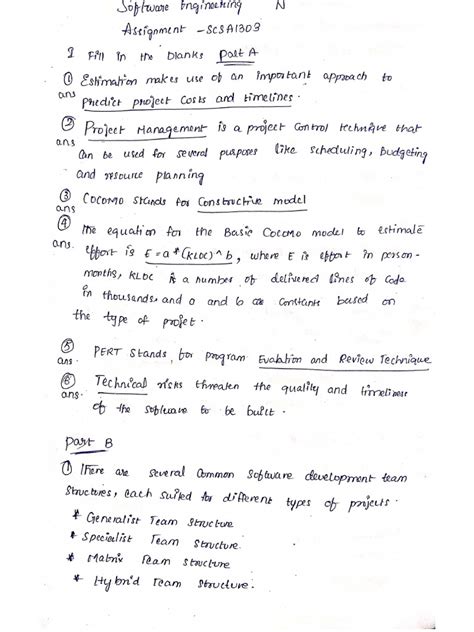 Software Engineering N
Assignment - SCSA1303
I Fill in the blanks Part A
① Estimation makes use of an important approach to
ans predict project costs and timelines.
② Project Management is a project control technique that
ans can be used for several purposes like scheduling, Budgeting
and resource planning
③ COCOMO stands for Constructive model
ans
④ The equation for the Basic Cocomo model to estimate
ans. effort is E = a * (KLOC) ^ b, where E is effort in person-
months, KLOC is a number of delivered lines of Code
in thousands, and a and b are constants based on
the type of projet.
⑤ PERT Stands for program Evalation and Review Technique
ans.
⑥ Technical risks threaten the quality and timeliness
ans. of the software to be built.
Part B
① There are several common Software development team
Structures, each suited for different types of projects.
* Generalist Team Structure
* Specialist Team Structure.
* Matrix Team Structure
* Hybrid Team Structure.